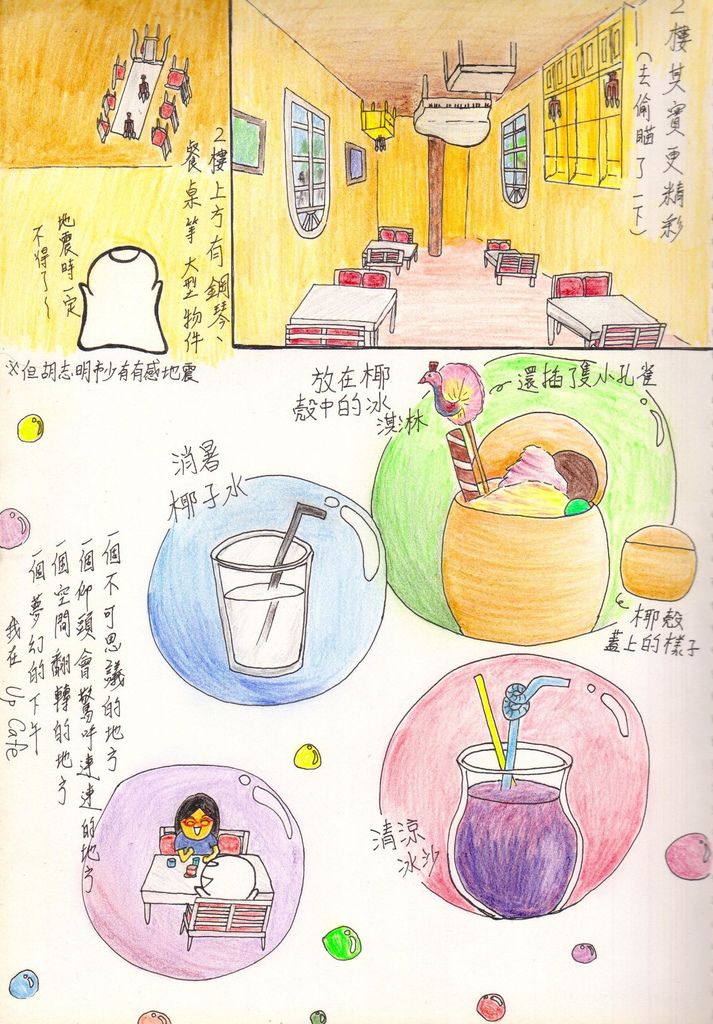 2樓其實更精彩
(去偷瞄了一下)
2樓上方有鋼琴、
餐桌等大型物件
地震時一定
不得了~
※但胡志明市少有有感地震
放在椰
殼中的冰
淇淋
還插了隻小孔雀
消暑
椰子水
椰殼
蓋上的樣子
一個不可思議的地方
一個仰頭會驚呼連連的地方
一個空間翻轉的地方
一個夢幻的下午
我在 Up Cafe
清涼
冰沙